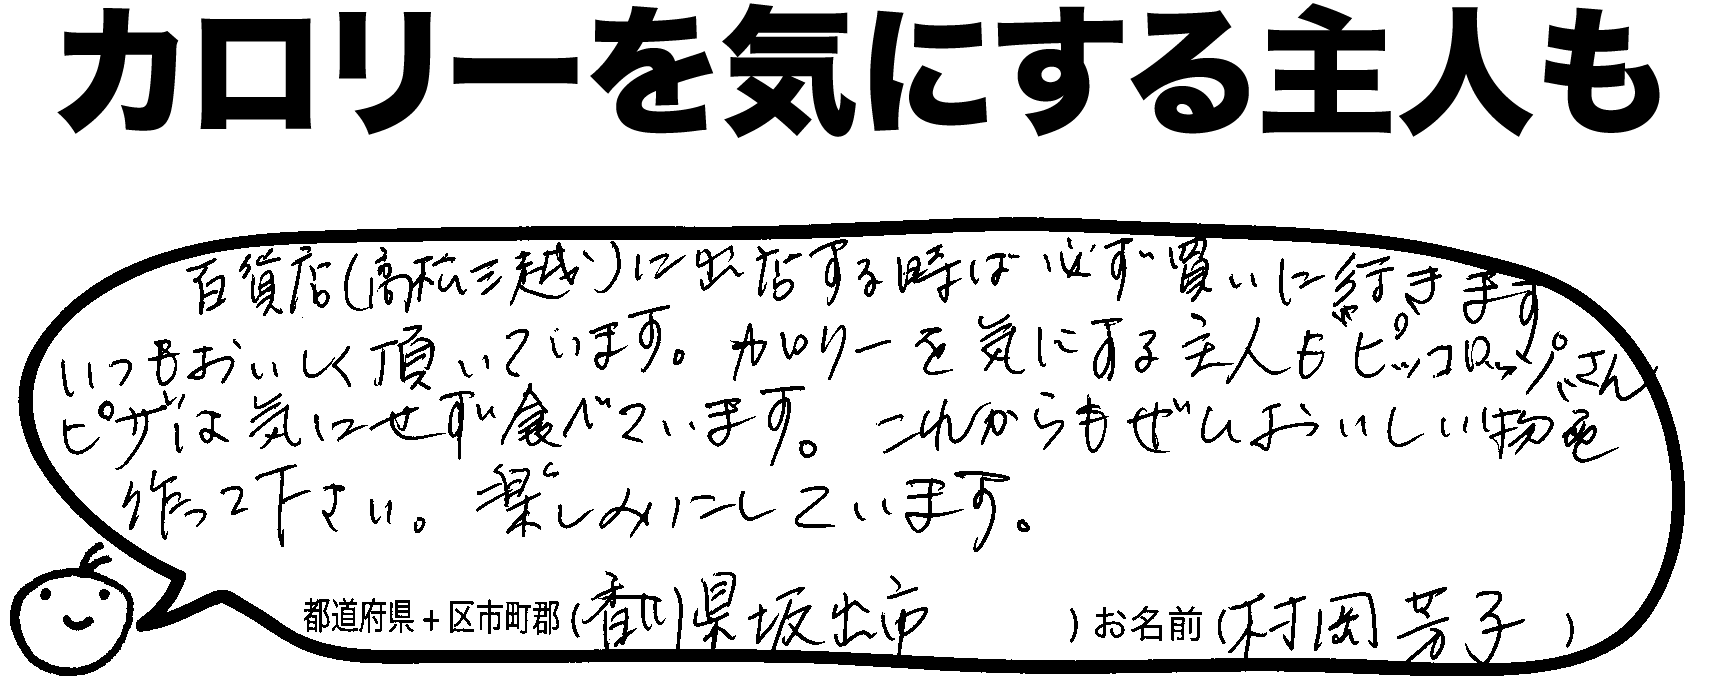 カロリーを気にする主人も
百貨店(高松三越)に出店する時は必ず買いに行きます。
いつもおいしく頂いています。カロリーを気にする主人もピッコロッソさん
ピザは気にせず食べています。これからもぜひおいしい物を
作って下さい。楽しみにしています。
都道府県+区市町郡(香川県坂出市 )お名前(村岡芳子 )